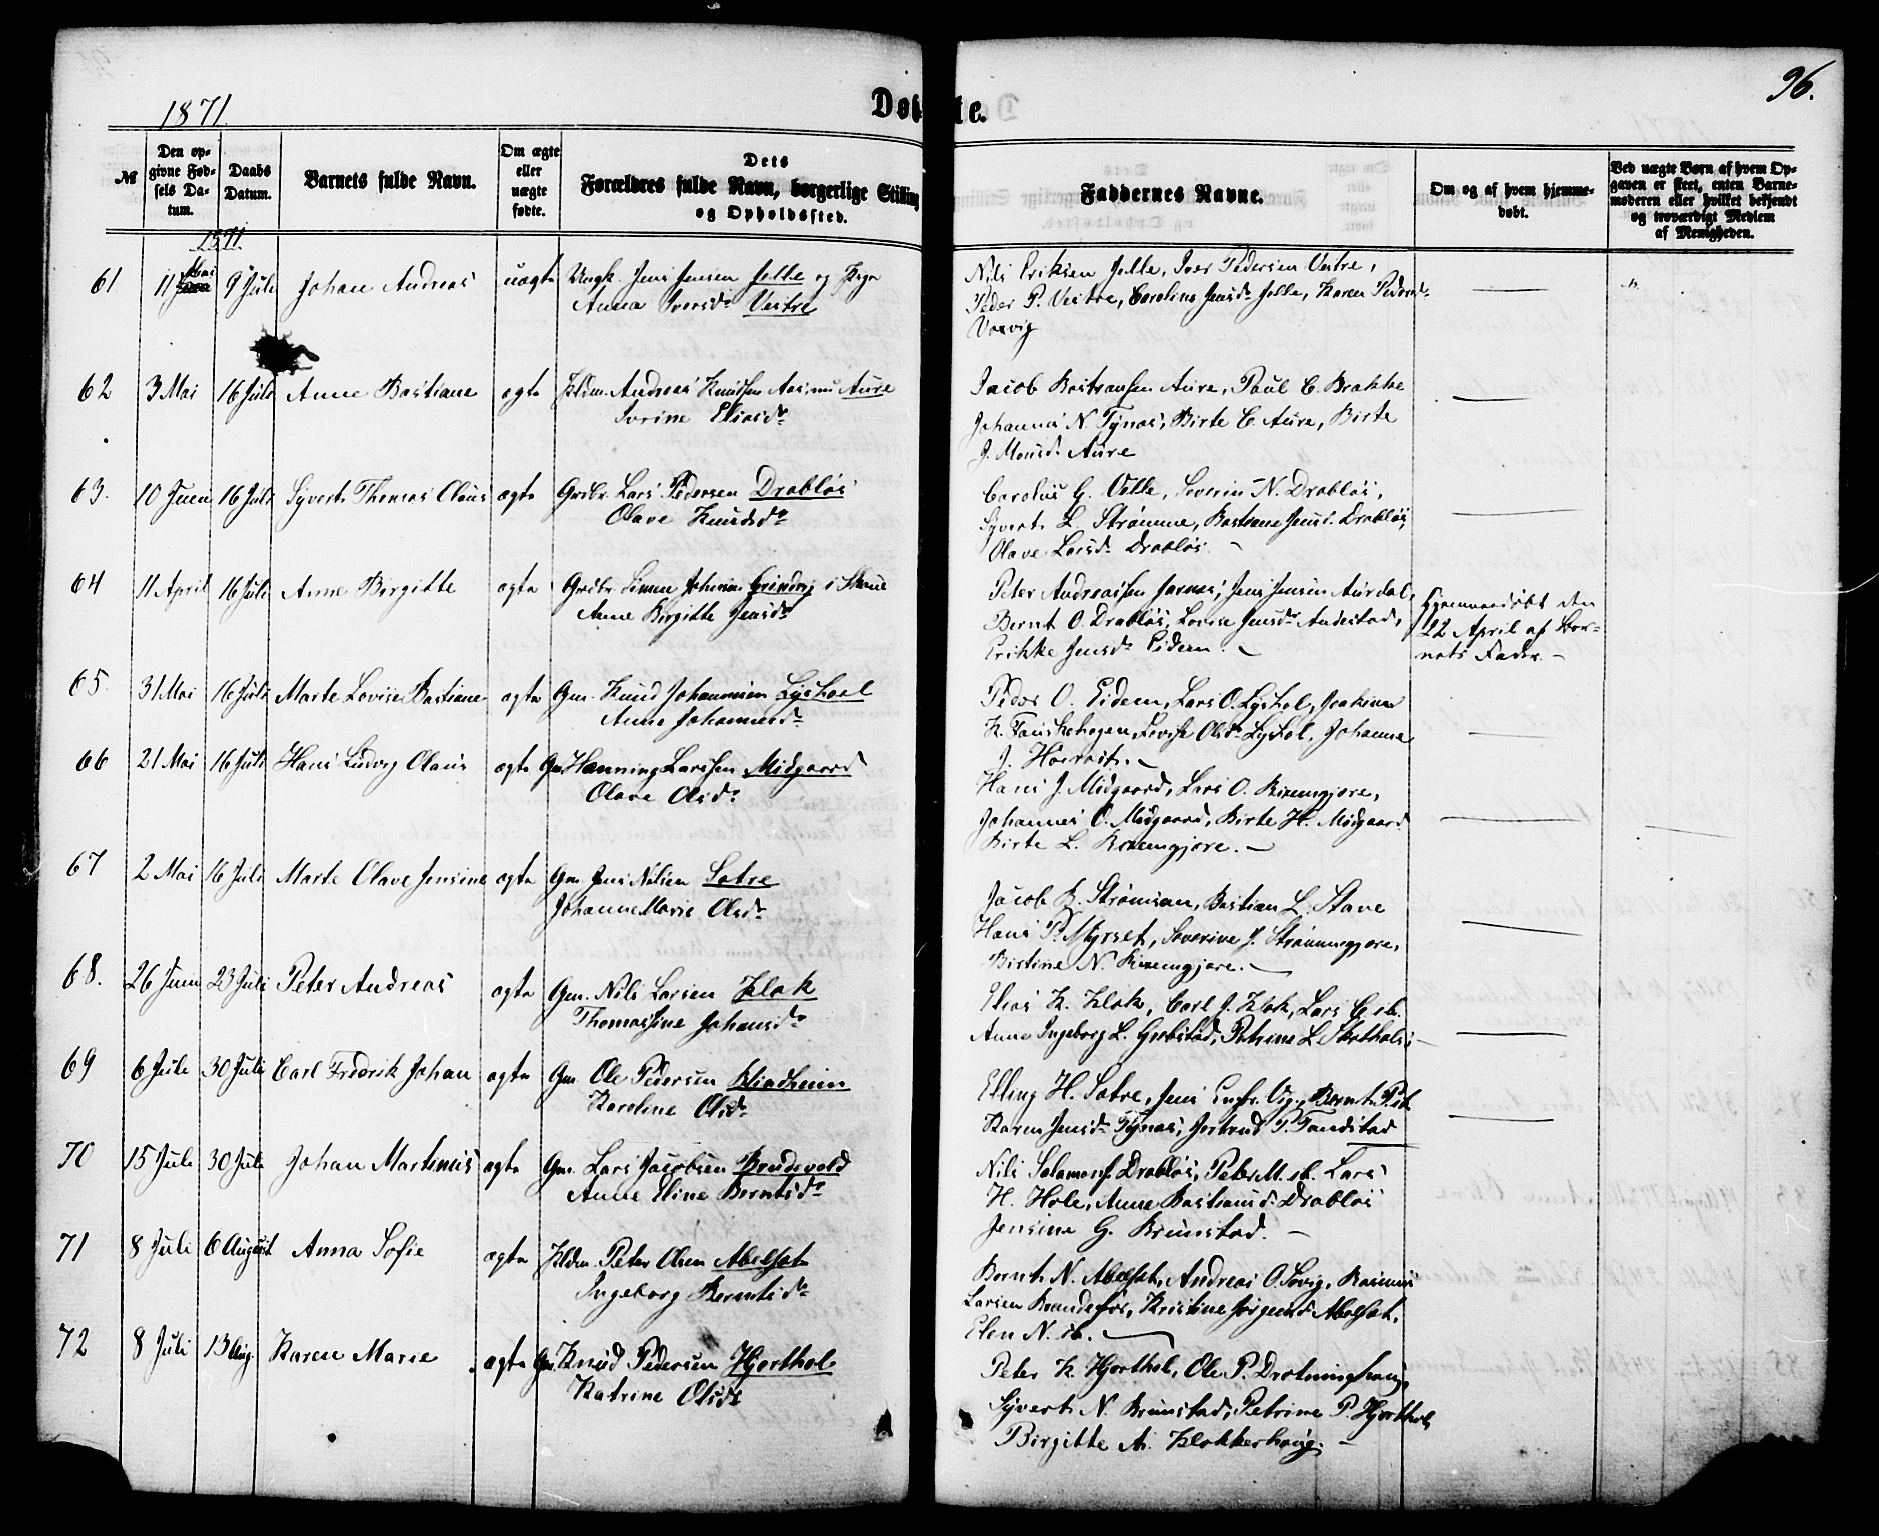 1871.
Døbte.
96.
№
Den opgivne Fødsels Datum.
Daabs Datum.
Barnets fulde Navn.
Om ægte eller uægte fødte.
Dets Forældres fulde Navn, borgerlige Stilling og Opholdssted.
Faddernes Navne.
Om og af hvem hjemmedøbt.
Ved uægte Børn af hvem Opgaven er skeet, enten Barnemoderen eller hvilket bekjendt og troværdigt Medlem af Menigheden.
1871.
61 11 Mai 9 Juli Johan Andreas uægte Ungk. Jens Jensen Jelle og Pige
Anna Iversdr Vestre
Nils Eriksen Jelle, Iver Pedersen Vestre,
Peder P. Vestre, Caroline Jensdr Jelle, Karen Pedersdr
62 3 Mai 16 Juli Anne Bastiane ægte Andreas Knudsen Aure
Eliasdr
Jacob Bastiansen Aure, Paul C. Brakke
Johannes N. Tynes, Birte C. Aure, Birte
J. Monsdr Aure
63. 10 Juni 16 Juli Syvert Thomas Olaus ægte Grdbr. Lars Pedersen Drabløs
Olave Knudsdr
Carolus G. Velle, Severin N. Drabløs,
Syvert L. Strømme, Bastiane Jensd. Drabløs,
Olave Larsdr Drabløs.
64 11 April 16 Juli Anne Birgitte ægte Grdbr. Simen i
Anne Birgitte Jensdr
Peter Andreassen Jarnes, Jens Jensen Aurdal,
Bernt O. Drabløs, Lovise Jensdr Andestad,
Erikke Jensdr Eidem.
Hjemmedøbt den
22 April af Bar-
nets Fader.
65 31 Mai 16 Juli Marte Lovise Bastiane ægte Gm. Knud Johannesen Lyshoel
Anne Johannesdr
Peder O. Eidem, Lars O. Lyshol, Joakim
K. Fauskehagen, Lovise Olsdr Lyshol, Johanne
J.
66 21 Mai 16 Juli Hans Ludvig Olaus ægte Gm. Henning Larssen Midgaard
Olave Olsdr
Hans J. Midgaard, Lars O. Riksemgjere,
Johannes O. Midgaard, Birte H. Midgaard
Birte L. Riksemgjere.
67 2 Mai 16 Juli Marte Olave Jensine ægte Gm. Jens Nilsen Sætre
Johanne Marie Olsdr
Jacob B. Strømmen, Bastian L. Stave
Hans P. Myrset, Severine J. Strømmegjere,
Bistine N. Riksemgjere.
68. 26 Juni 23 Juli Peter Andreas ægte Gm. Nils Larsen Klok
Thomassine Johansdr
Elias K. Klok, Carl J. Klok, Lars C. ib.
Anne Ingeborg L. Grebstad, Petrine L.
69 6 Juli 30 Juli Carl Fredrik Johan ægte Gm. Ole Pedersen Blindheim
Karoline Olsdr
Elling H. Sætre, Jens Vig, Bernt P. ib.
Karen Jensdr Tynes, Jertrud P. Tandstad
70 15 Juli 30 Juli Johan Martinus ægte Gm. Lars Jacobsen Brudevold
Anne Eline Berntsdr
Nils Salamons. Drabløs, Peter M. ib. Lars
H. Hole, Anne Bastiansd. Drabløs
Jensine G. Brunstad.
71 8 Juli 6 August Anna Sofie ægte Peter Olsen Abelset
Ingeborg Berntsdr
Bernt N. Abelset, Andreas O. Søvig, Rasmus
Larsen Brudefos, Kristine Jørgensd. Abelset,
Elen N. ib.
72 8 Juli 13 Aug. Karen Marie ægte Gm. Knud Pedersen Hjorthol
Katrine Olsdr
Peter K. Hjorthol, Ole P. Drotninghaug,
Syvert N. Brunstad, Petrine P. Hjorthol,
Birgitte A. Klokkerhaug.